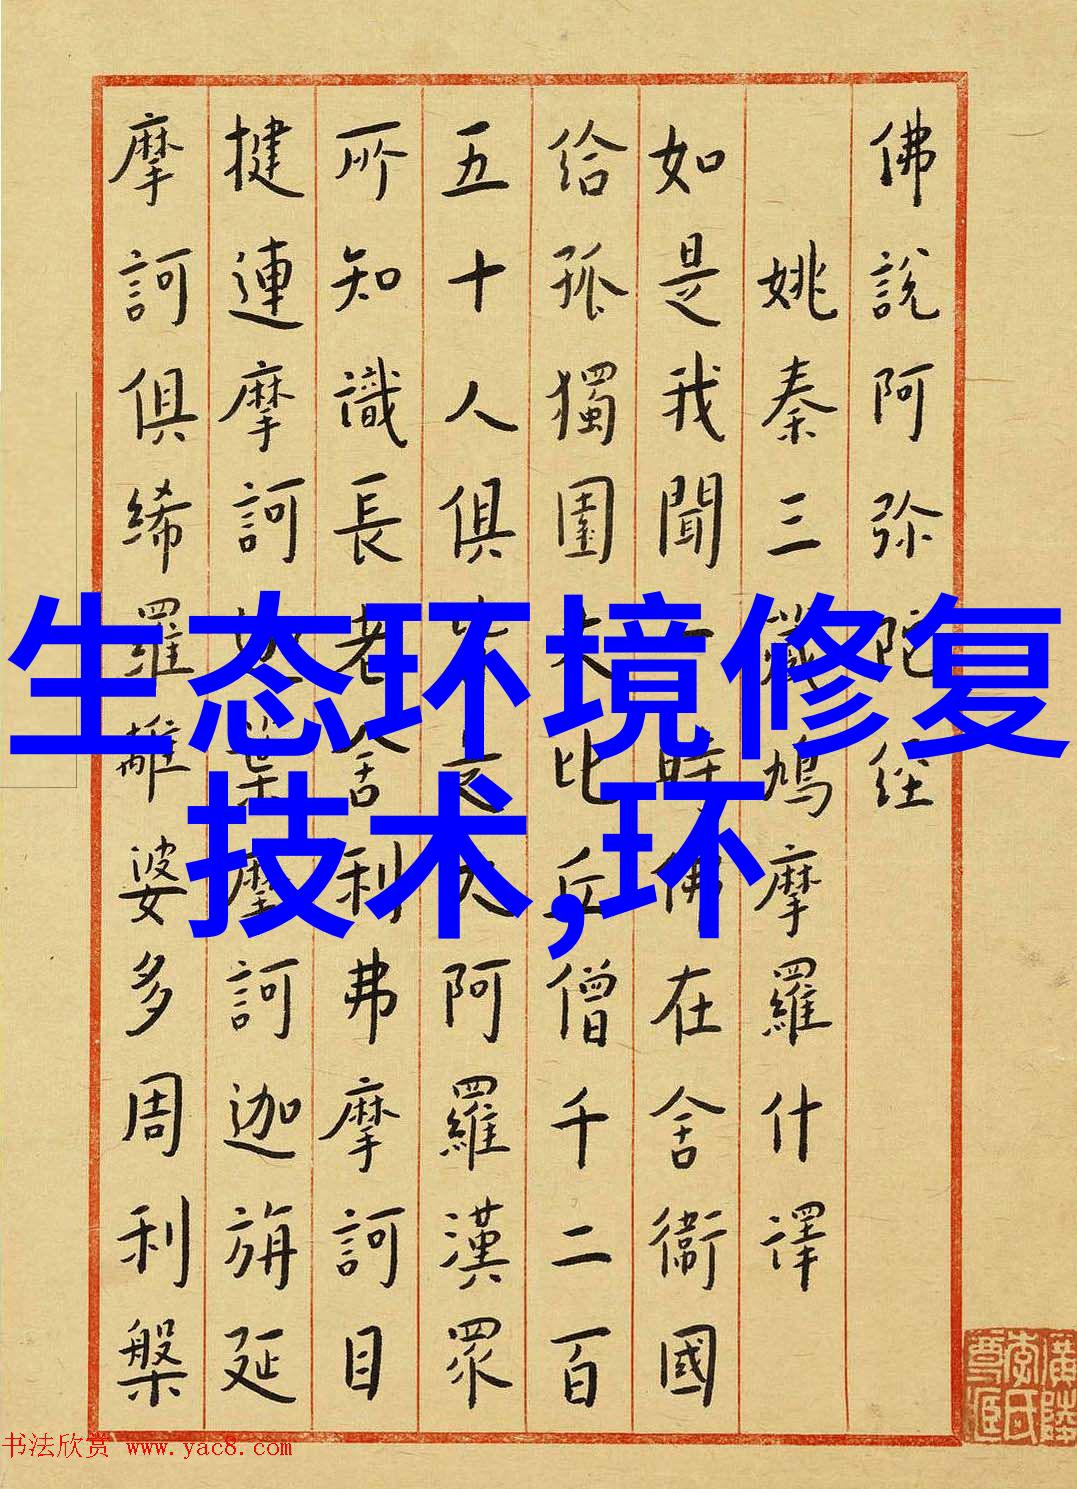 佛說阿弥陀经
姚秦三藏鳩摩羅什譯
如是我聞一時佛在舍衞國
给孤獨園大比丘僧千二百
五十人俱皆是大阿羅漢眾
所知識長老舍利弗摩訶目
揵連摩訶迦葉摩訶迦旃延
摩訶俱絺羅離婆多周利槃
生态环境修复
技术,环
书法欣赏 www.yac8.com